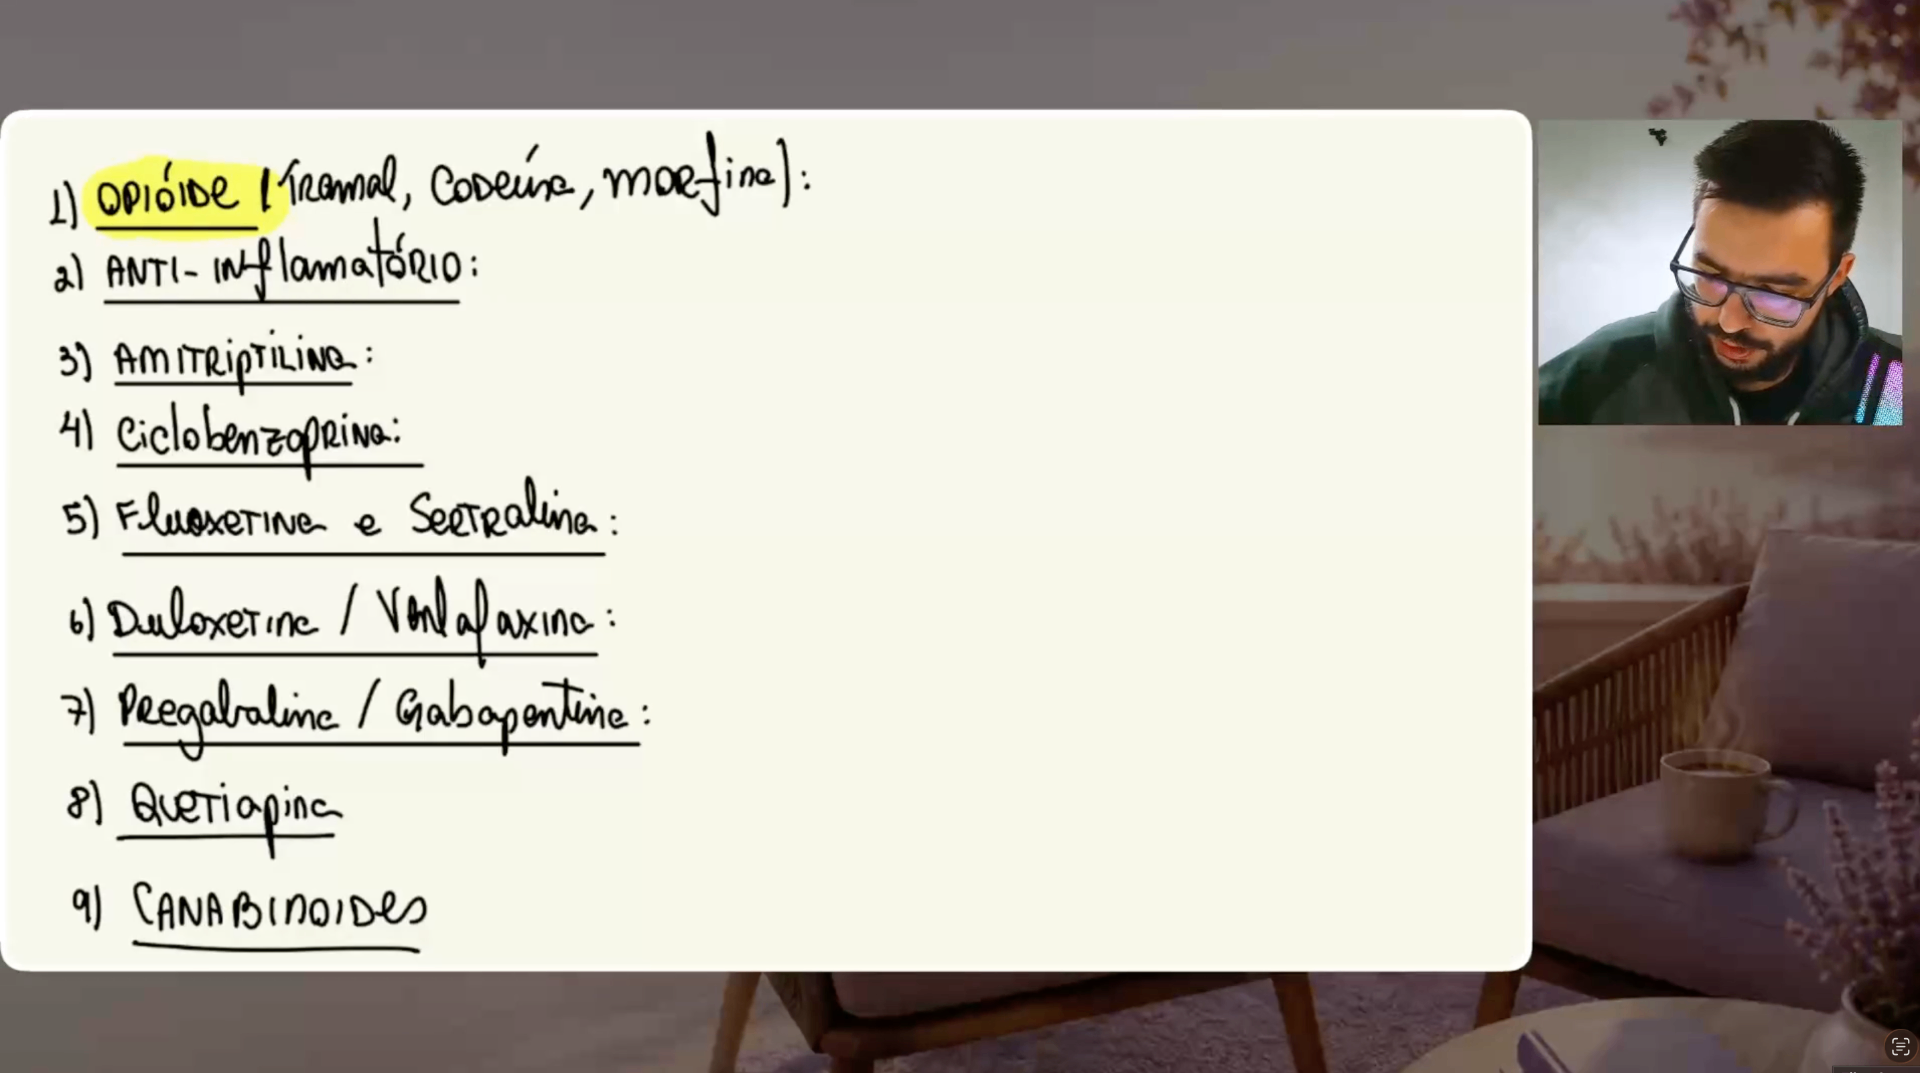 1) OPIÓIDE (Tramal, Codeína, morfina):
2) ANTI-INflamatÓRIO:
3) AMITRipTILINa:
4) CiclobenzapRiNa:
5) FluoxeTINa e SeRTRalina:
6) DuloxeTina / Venlafaxina:
7) PRegabalina / Gabapentina:
8) QueTiapina
9) CANABINOIDes